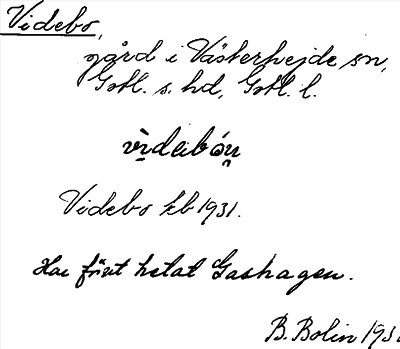 Videbo,
gård i Västerhejde sn,
Gotl. s. hd, Gotl. l.
Videbo kb 1931.
Har förut hetat Gashagen.
B. Bolin